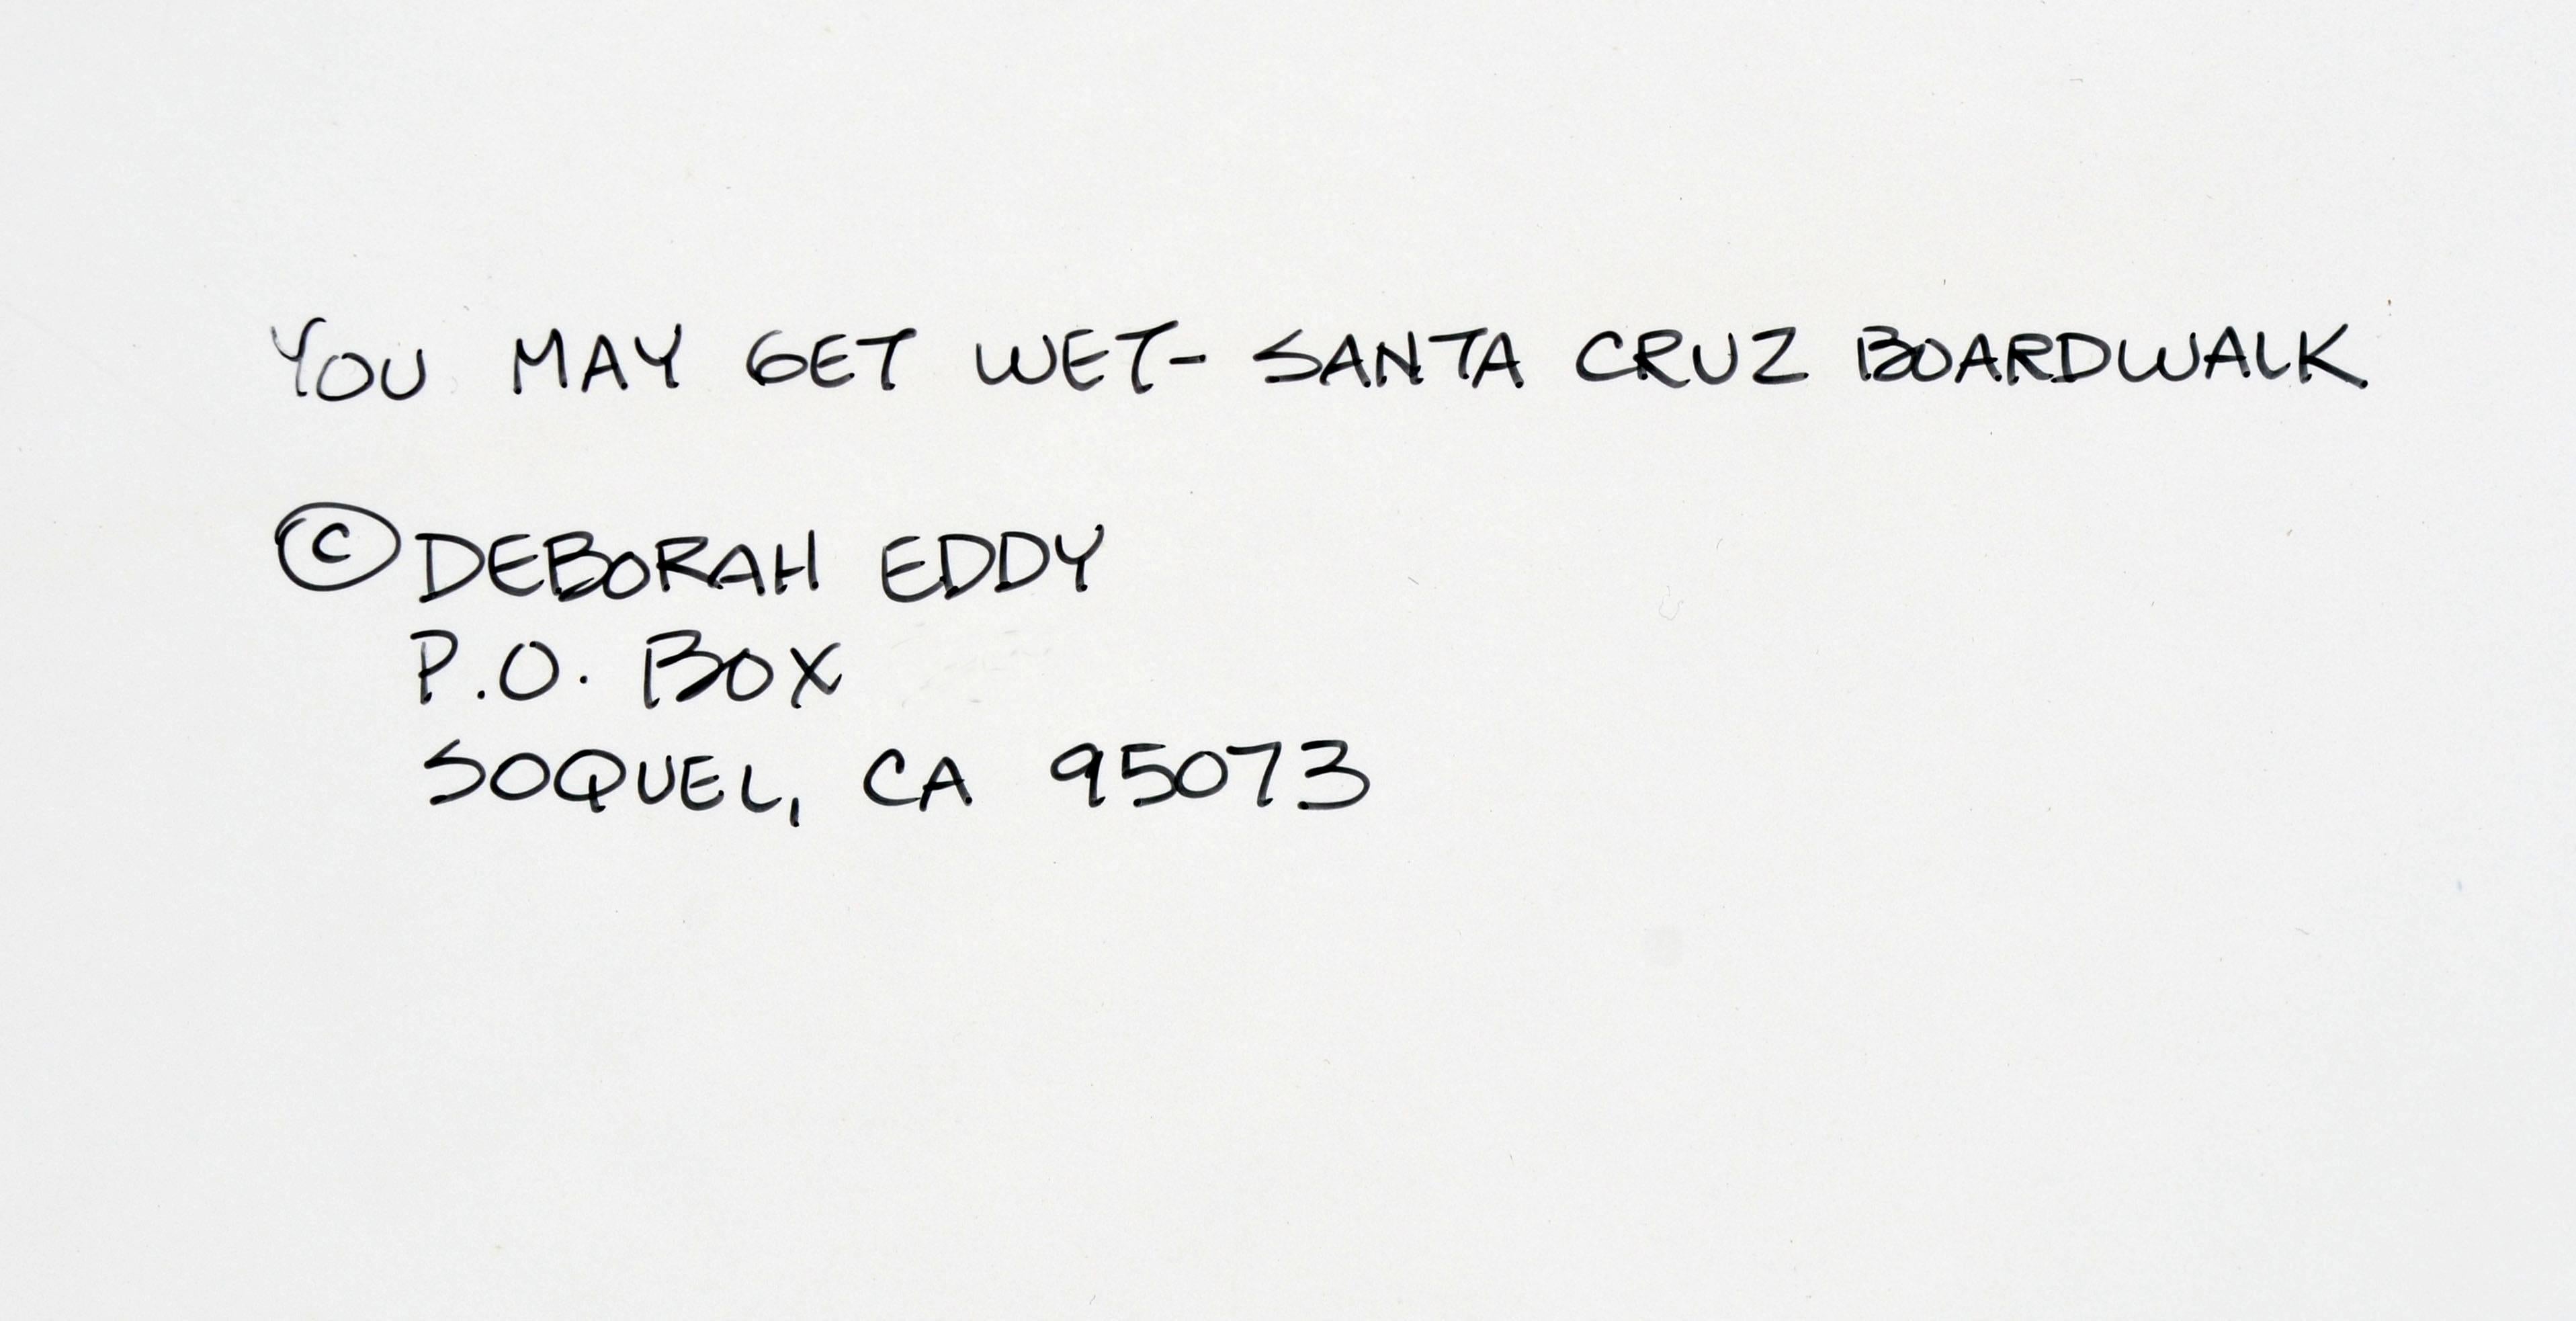 YOU MAY GET WET- SANTA CRUZ BOARDWALK
© DEBORAH EDDY
P.O. BOX
SOQUEL, CA 95073